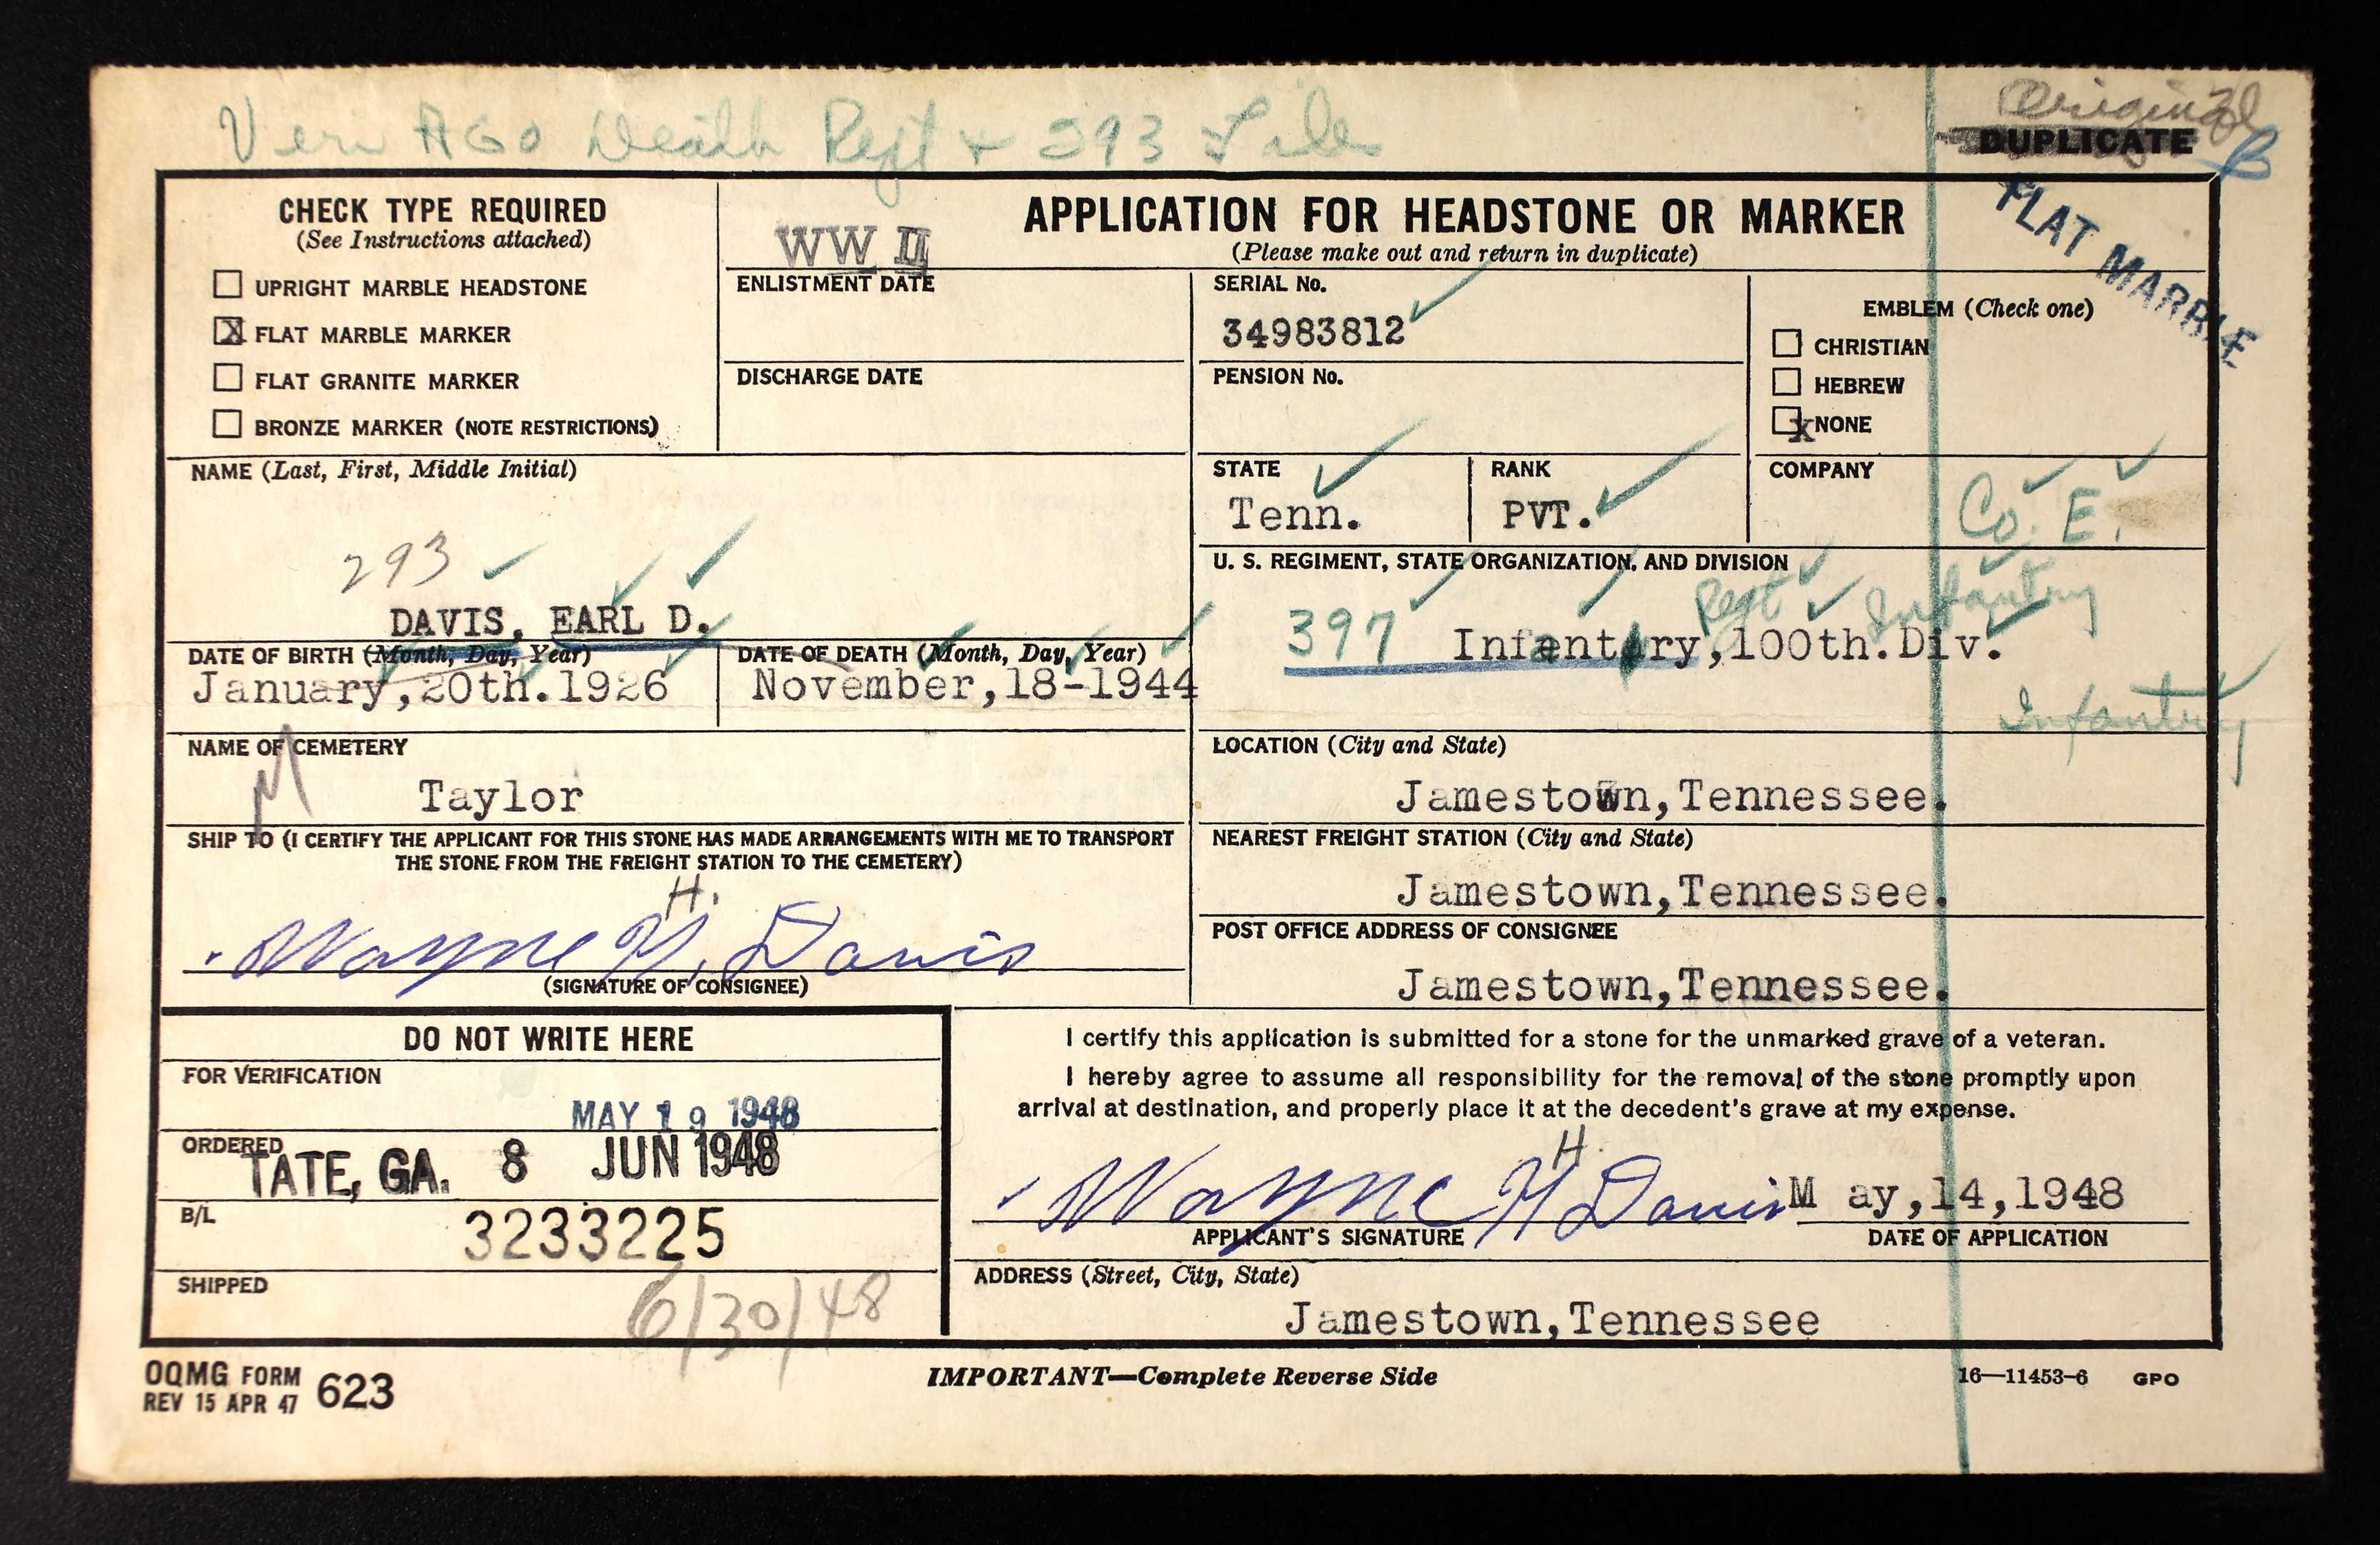 Veri AGO Death Rept + 293 File
Original
DUPLICATE
B
FLAT MARBLE
CHECK TYPE REQUIRED
(See Instructions attached)
UPRIGHT MARBLE HEADSTONE
X FLAT MARBLE MARKER
FLAT GRANITE MARKER
BRONZE MARKER (NOTE RESTRICTIONS)
WW II
APPLICATION FOR HEADSTONE OR MARKER
(Please make out and return in duplicate)
ENLISTMENT DATE
DISCHARGE DATE
SERIAL No.
34983812
PENSION No.
EMBLEM (Check one)
CHRISTIAN
HEBREW
X NONE
NAME (Last, First, Middle Initial)
293
DAVIS, EARL D.
STATE
Tenn.
RANK
PVT.
COMPANY
Co. E.
U. S. REGIMENT, STATE ORGANIZATION, AND DIVISION
Regt Infantry
397 Infantry,100th.Div.
Infantry
DATE OF BIRTH (Month, Day, Year)
January,20th.1926
DATE OF DEATH (Month, Day, Year)
November,18-1944
NAME OF CEMETERY
Taylor
LOCATION (City and State)
Jamestown,Tennessee.
SHIP TO (I CERTIFY THE APPLICANT FOR THIS STONE HAS MADE ARRANGEMENTS WITH ME TO TRANSPORT
THE STONE FROM THE FREIGHT STATION TO THE CEMETERY)
H.
Wayne H. Davis
(SIGNATURE OF CONSIGNEE)
NEAREST FREIGHT STATION (City and State)
Jamestown,Tennessee.
POST OFFICE ADDRESS OF CONSIGNEE
Jamestown,Tennessee.
DO NOT WRITE HERE
FOR VERIFICATION
MAY 19 1948
ORDERED
TATE, GA. 8 JUN 1948
B/L
3233225
SHIPPED
6/30/48
I certify this application is submitted for a stone for the unmarked grave of a veteran.
I hereby agree to assume all responsibility for the removal of the stone promptly upon
arrival at destination, and properly place it at the decedent's grave at my expense.
H.
Wayne H Davis M ay,14,1948
APPLICANT'S SIGNATURE DATE OF APPLICATION
ADDRESS (Street, City, State)
Jamestown,Tennessee
OQMG FORM 623
REV 15 APR 47
IMPORTANT—Complete Reverse Side
16—11453-6 GPO